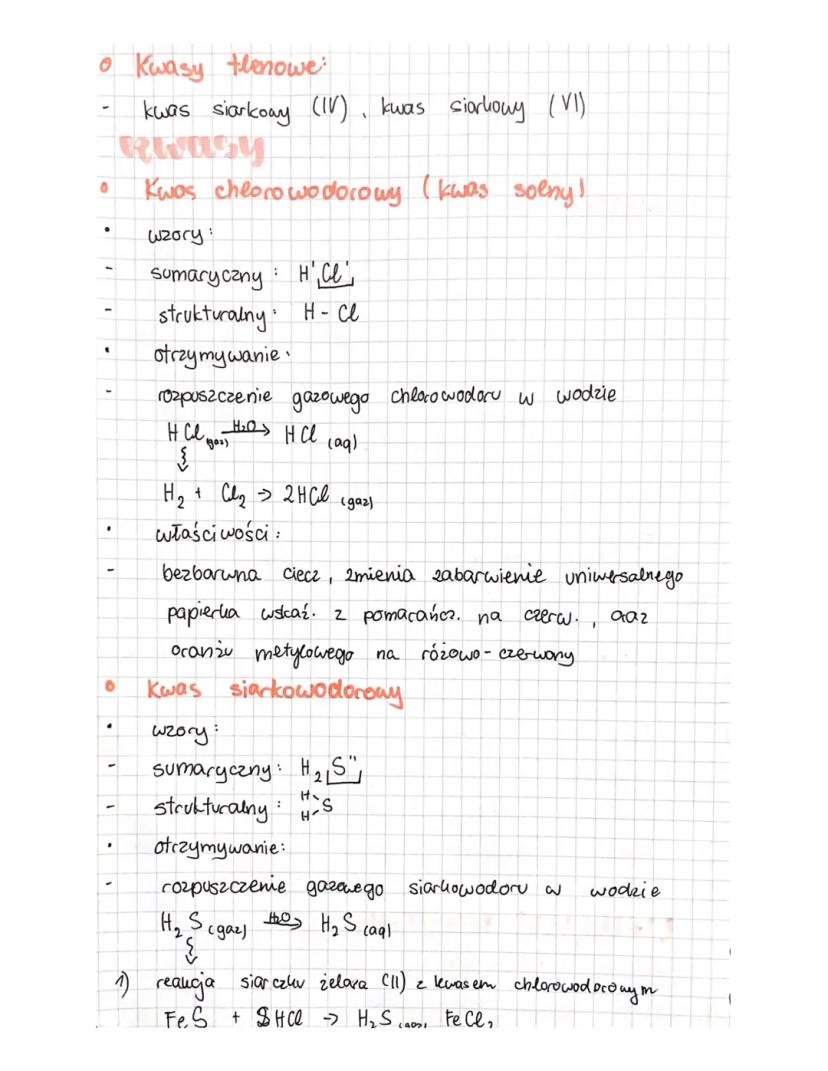 Kwasy tlenowe:
- kwas siarkowy (IV), kwas siarkowy (VI)
KWASY
Kwas chlorowodorowy (kwas solny)
• wzory:
- sumaryczny: H'Cl'
- strukturalny: H - Cl
• otrzymywanie:
- rozpuszczenie gazowego chlorowodoru w wodzie
HCl (gaz) H₂O→ HCl (aq)
H₂ + Cl₂ → 2HCl (gaz)
• właściwości:
- bezbarwna ciecz, zmienia zabarwienie uniwersalnego
papierka wskaź. z pomarańcz. na czerw., oraz
oranżu metylowego na różowo-czerwony
Kwas siarkowodorowy
• wzory:
- sumaryczny: H₂S"
- strukturalny: H H S
• otrzymywanie:
- rozpuszczenie gazowego siarkowodoru w wodzie
H₂S (gaz) H₂O→ H₂S (aq)
1) reakcja siarczku żelaza (II) z kwasem chlorowodorowym
FeS + HCl → H₂S (gaz) FeCl₂